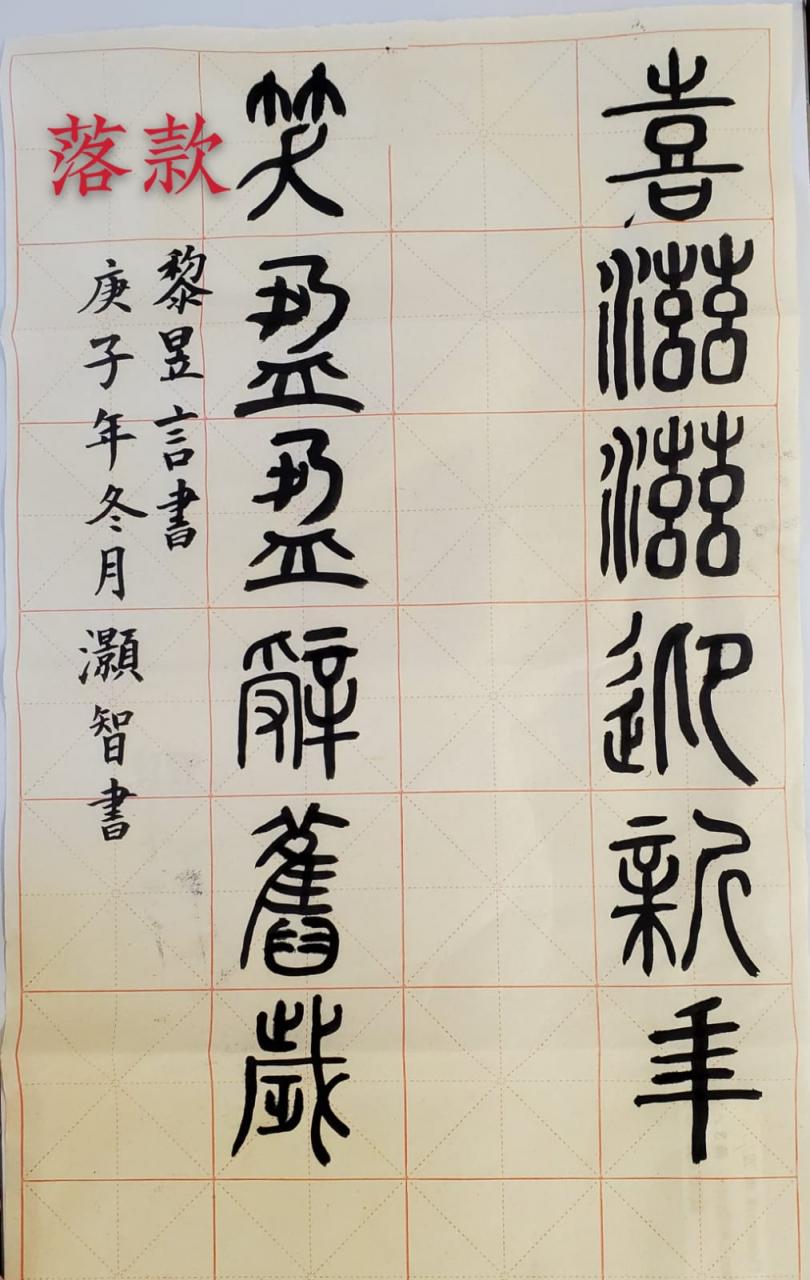 喜滋滋迎新年
笑盈盈辭舊歲
落款
黎昱言書
庚子年冬月灝智書